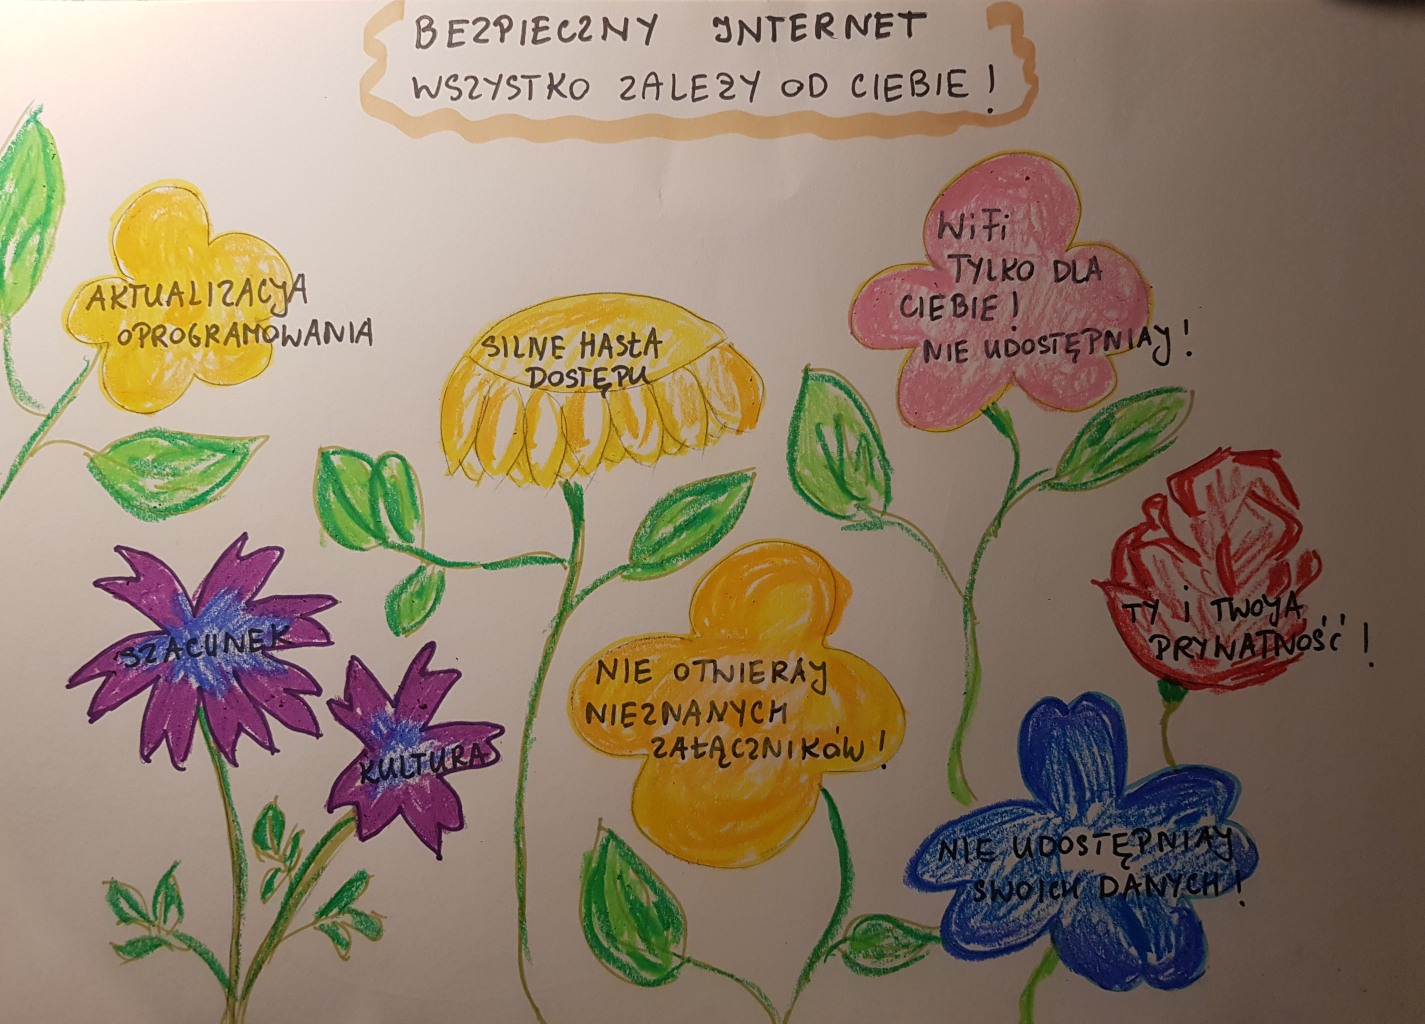 BEZPIECZNY INTERNET
WSZYSTKO ZALEZY OD CIEBIE!
AKTUALIZACJA
OPROGRAMOWANIA
SILNE HASŁA
DOSTĘPU
WiFi
TYLKO DLA
CIEBIE!
NIE UDOSTĘPNIAJ!
SZACUNEK
KULTURA
NIE OTWIERAJ
NIEZNANYCH
ZAŁĄCZNIKÓW!
TY i TWOJA
PRYWATNOŚĆ!
NIE UDOSTĘPNIAJ
SWOICH DANYCH!